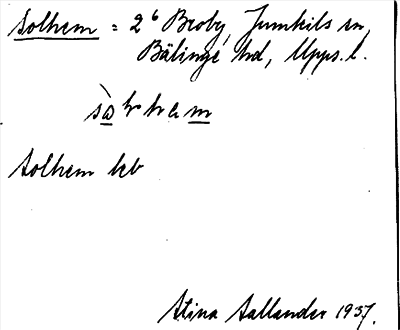 Solhem = 2⁶ Broby, Jumkils sn,
Bälinge hd, Upps. l.
Solhem leb
Stina Sallander 1937.